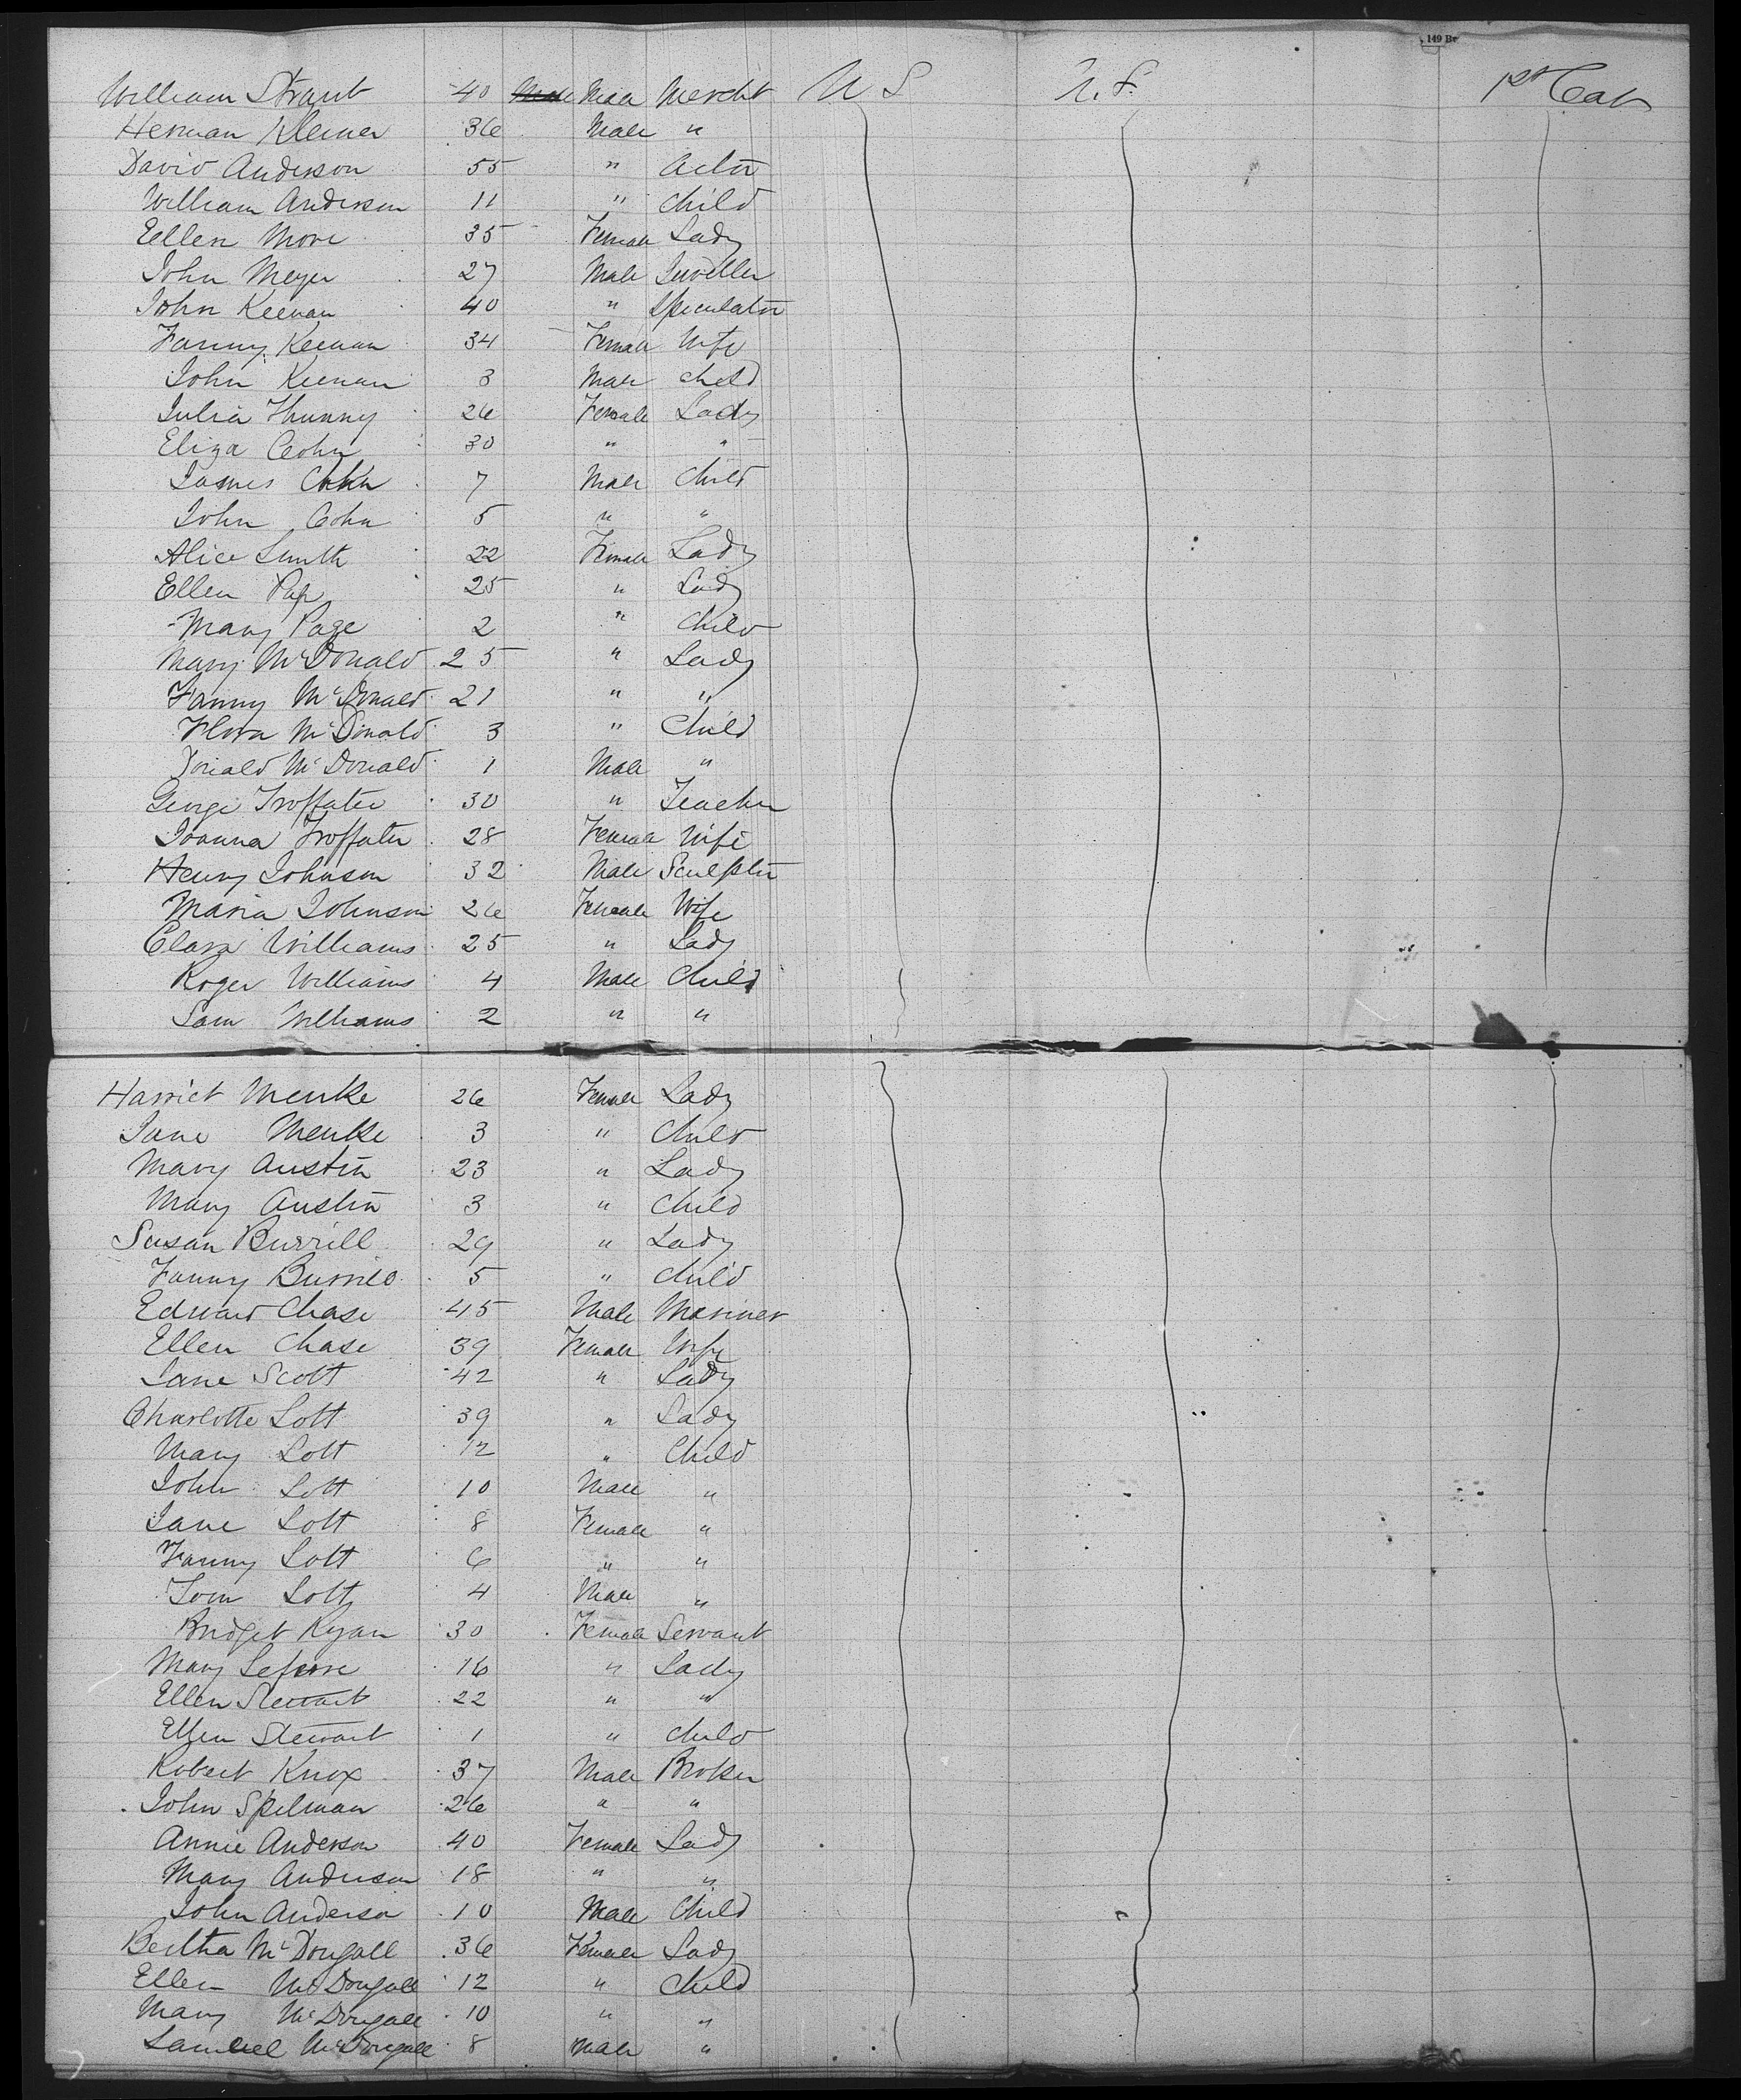 149 Br
William Straut 40 Male Male Mercht U S U.S. 1st Cab
Herman Kleiner 36 Male "
David Anderson 55 " Actor
William Anderson 11 " Child
Eellen More 35 Female Lady
John Meyer 27 Male Juveller
John Keenan 40 " Speculator
Fanny Keenan 34 Female Wife
John Keenan 3 Male Child
Julia Thunny 26 Female Lady
Eliza Cohn 30 " "
James Cohn 7 Male Child
John Cohn 5 " "
Alice Smith 22 Female Lady
Ellen Page 25 " Lady
Mary Page 2 " Child
Mary McDonald 25 " Lady
Fanny McDonald 21 " "
Flora McDonald 3 " Child
Donald McDonald 1 Male "
George Troffater 30 " Teacher
Joanna Troffater 28 Female Wife
Henry Johnson 32 Male Sculptor
Maria Johnson 26 Female Wife
Clara Williams 25 " Lady
Roger Williams 4 Male Child
Sam Williams 2 " "
Harriet Menke 26 Female Lady
Jane Menke 3 " Child
Mary Austin 23 " Lady
Mary Austin 3 " Child
Susan Burrill 29 " Lady
Fanny Burrill 5 " Child
Edward Chase 45 Male Mariner
Ellen Chase 39 Female Wife
Jane Scott 42 " Lady
Charlotte Lott 39 " Lady
Mary Lott 12 " Child
John Lott 10 Male "
Jane Lott 8 Female "
Fanny Lott 6 " "
Tom Lott 4 Male "
Bridget Ryan 30 Female Servant
Mary 16 " Lady
Ellen Stewart 22 " "
Ellen Stewart 1 " Child
Robert Knox 37 Male Broker
John Spelman 26 " "
Annie Anderson 40 Female Lady
Mary Anderson 18 " "
John Anderson 10 Male Child
Bertha McDougall 36 Female Lady
Ellen McDougall 12 " Child
Mary McDougall 10 " "
Samuel McDougall 8 Male "